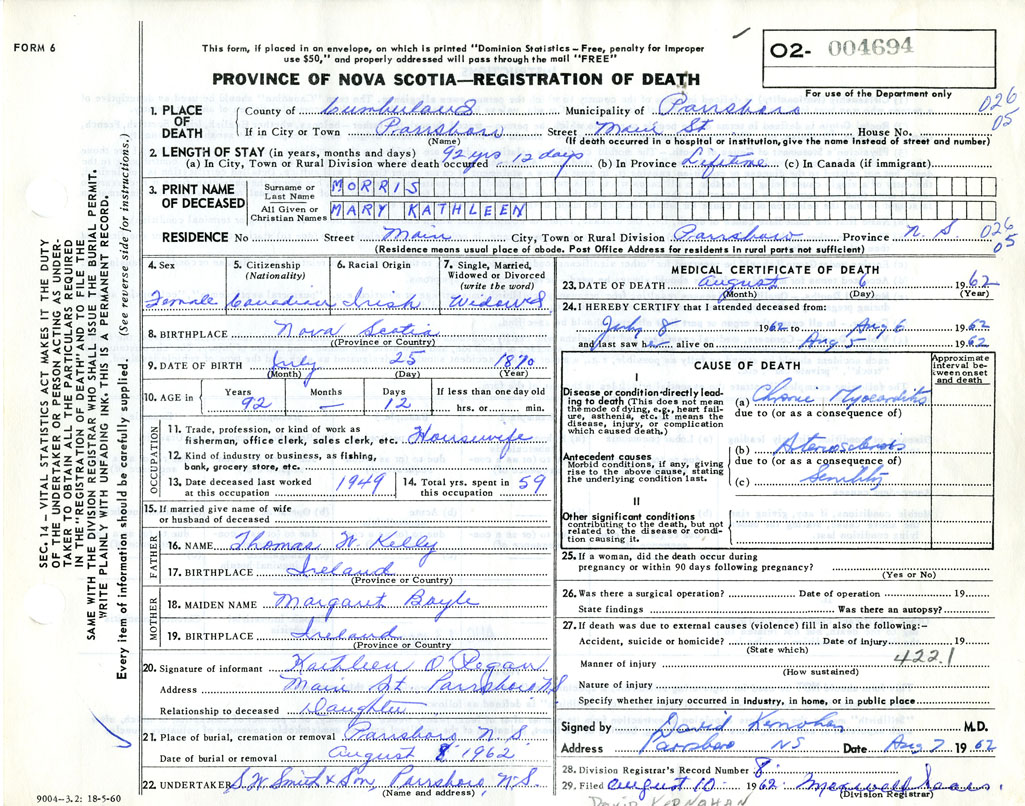 FORM 6
This form, if placed in an envelope, on which is printed "Dominion Statistics – Free, penalty for improper
use $50," and properly addressed will pass through the mail "FREE"
O2- 004694
For use of the Department only
PROVINCE OF NOVA SCOTIA—REGISTRATION OF DEATH
1. PLACE OF DEATH County of Cumberland Municipality of Parrsboro 026
If in City or Town Parrsboro Street Main St House No. 05
(Name) (If death occurred in a hospital or institution, give the name instead of street and number)
2. LENGTH OF STAY (in years, months and days) 92 yrs 12 days
(a) In City, Town or Rural Division where death occurred (b) In Province Lifetime (c) In Canada (if immigrant)
3. PRINT NAME OF DECEASED
Surname or Last Name MORRIS
All Given or Christian Names MARY KATHLEEN
RESIDENCE No Street Main City, Town or Rural Division Parrsboro Province N.S. 026
05
(Residence means usual place of abode. Post Office Address for residents in rural parts not sufficient)
4. Sex 5. Citizenship (Nationality) 6. Racial Origin 7. Single, Married, Widowed or Divorced (write the word)
Female Canadian Irish Widowed
8. BIRTHPLACE Nova Scotia
(Province or Country)
9. DATE OF BIRTH July 25 1870
(Month) (Day) (Year)
10. AGE in Years Months Days If less than one day old
92 — 12 hrs. or min.
OCCUPATION
11. Trade, profession, or kind of work as
fisherman, office clerk, sales clerk, etc. Housewife
12. Kind of industry or business, as fishing,
bank, grocery store, etc.
13. Date deceased last worked at this occupation 1949 14. Total yrs. spent in this occupation 59
15. If married give name of wife
or husband of deceased
FATHER
16. NAME Thomas W. Kelly
17. BIRTHPLACE Ireland
(Province or Country)
MOTHER
18. MAIDEN NAME Margaret Boyle
19. BIRTHPLACE Ireland
(Province or Country)
20. Signature of informant Kathleen O'Regan
Address Main St. Parrsboro NS
Relationship to deceased Daughter
21. Place of burial, cremation or removal Parrsboro N.S.
Date of burial or removal August 8, 1962
22. UNDERTAKER S.W. Smith & Son, Parrsboro, N.S.
(Name and address)
MEDICAL CERTIFICATE OF DEATH
23. DATE OF DEATH August 6 1962
(Month) (Day) (Year)
24. I HEREBY CERTIFY that I attended deceased from:
July 8 1962 to Aug 6 1962
and last saw her alive on Aug 5 1962
CAUSE OF DEATH
Approximate interval between onset and death
I
Disease or condition directly leading to death (This does not mean the mode of dying, e.g., heart failure, asthenia, etc. It means the disease, injury, or complication which caused death.)
(a) Chronic Myocarditis
due to (or as a consequence of)
Antecedent causes
Morbid conditions, if any, giving rise to the above cause, stating the underlying condition last.
(b) Arteriosclerosis
due to (or as a consequence of)
(c) Senility
II
Other significant conditions
contributing to the death, but not related to the disease or condition causing it.
25. If a woman, did the death occur during
pregnancy or within 90 days following pregnancy?
(Yes or No)
26. Was there a surgical operation? Date of operation 19
State findings Was there an autopsy?
27. If death was due to external causes (violence) fill in also the following:-
Accident, suicide or homicide? Date of injury 19
(State which) 422.1
Manner of injury
(How sustained)
Nature of injury
Specify whether injury occurred in industry, in home, or in public place
Signed by David Kernohan M.D.
Address Parrsboro NS Date Aug 7 1962
28. Division Registrar's Record Number 8
29. Filed August 10 1962 Maxwell
(Division Registrar)
DAVID KERNAHAN
SEC. 14 – VITAL STATISTICS ACT MAKES IT THE DUTY
OF THE UNDERTAKER OR PERSON ACTING AS UNDERTAKER
TO OBTAIN ALL THE PARTICULARS REQUIRED
IN THE "REGISTRATION OF DEATH" AND TO FILE THE
SAME WITH THE DIVISION REGISTRAR WHO SHALL ISSUE THE BURIAL PERMIT.
WRITE PLAINLY WITH UNFADING INK. THIS IS A PERMANENT RECORD.
Every item of information should be carefully supplied. (See reverse side for instructions.)
9004–3.2: 18-5-60